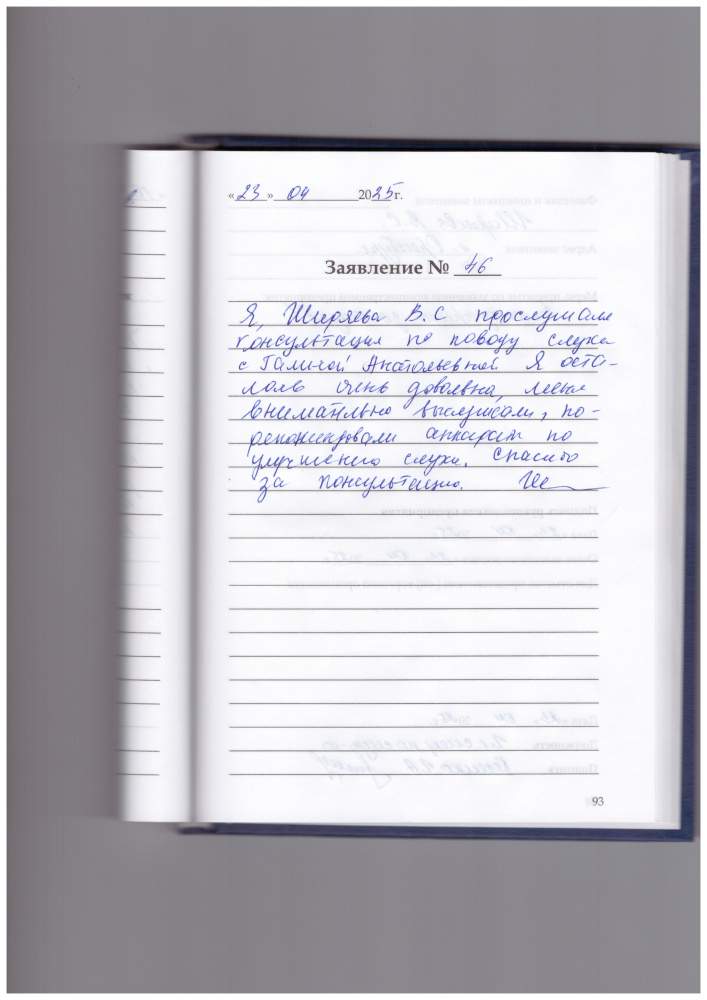 «23» 04 2025 г.
Заявление № 46
Я, Ширяева В.С прослушала
консультация по поводу слуха
с Галиной Анатольевной Я оста-
лась очень довольна, меня
внимательно выслушали, по-
рекомендовали аппарат по
улучшению слуха. Спасибо
за консультацию.
93